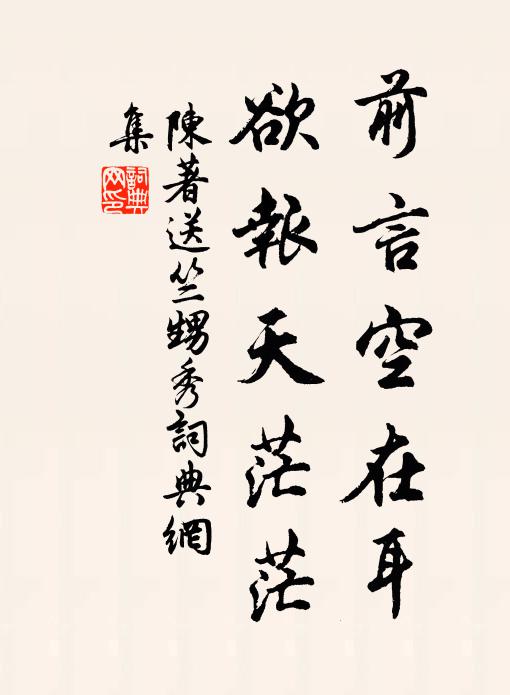 前言空在耳
欲報天茫茫
陳著送竺甥秀詞典網
集
詞典
网印